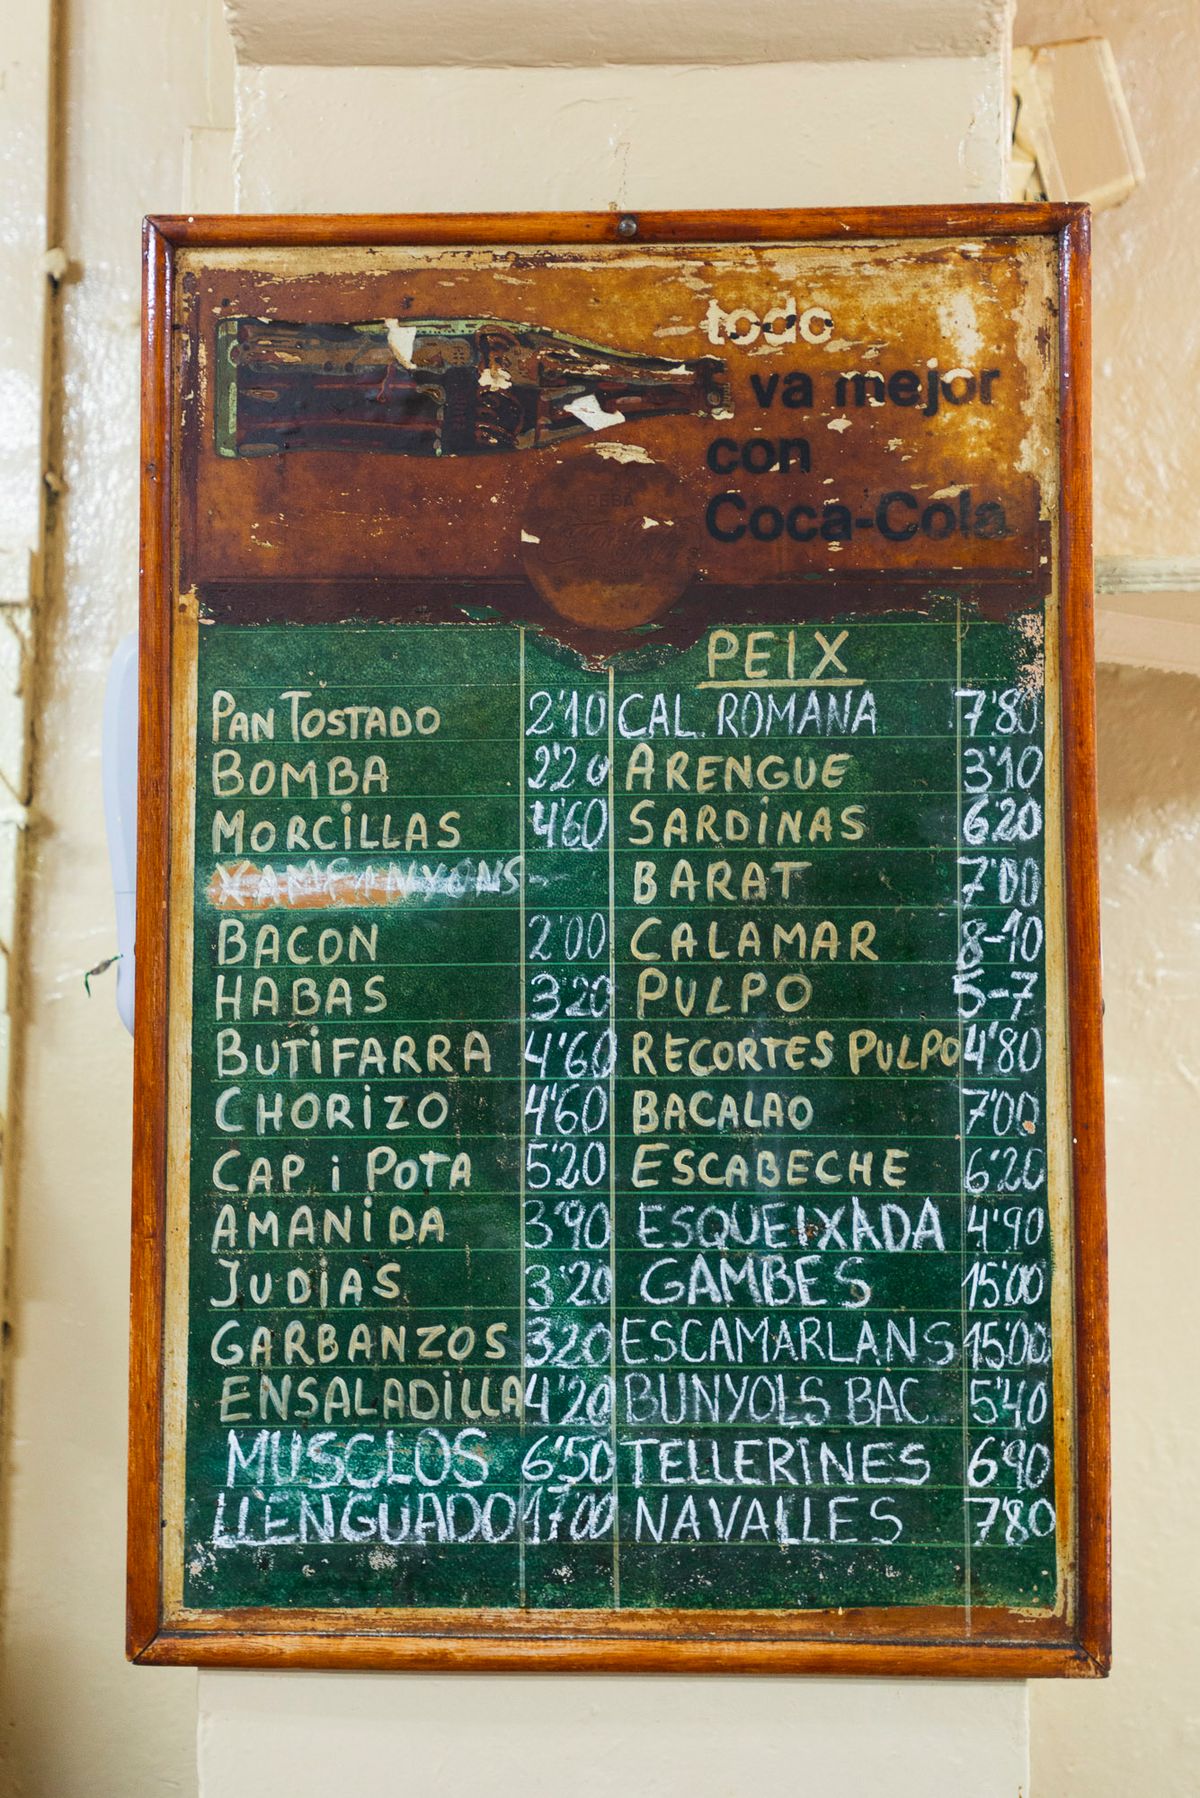 todo
va mejor
con
Coca-Cola
BEBA
PEIX
PAN TOSTADO 2'10 CAL. ROMANA 7'80
BOMBA 2'20 ARENGUE 3'10
MORCILLAS 4'60 SARDINAS 6'20
XAMPINYONS BARAT 7'00
BACON 2'00 CALAMAR 8-10
HABAS 3'20 PULPO 5-7
BUTIFARRA 4'60 RECORTES PULPO 4'80
CHORIZO 4'60 BACALAO 7'00
CAP i POTA 5'20 ESCABECHE 6'20
AMANIDA 3'90 ESQUEIXADA 4'90
JUDIAS 3'20 GAMBES 15'00
GARBANZOS 3'20 ESCAMARLANS 15'00
ENSALADILLA 4'20 BUNYOLS BAC. 5'40
MUSCLOS 6'50 TELLERINES 6'90
LLENGUADO 17'00 NAVALLES 7'80